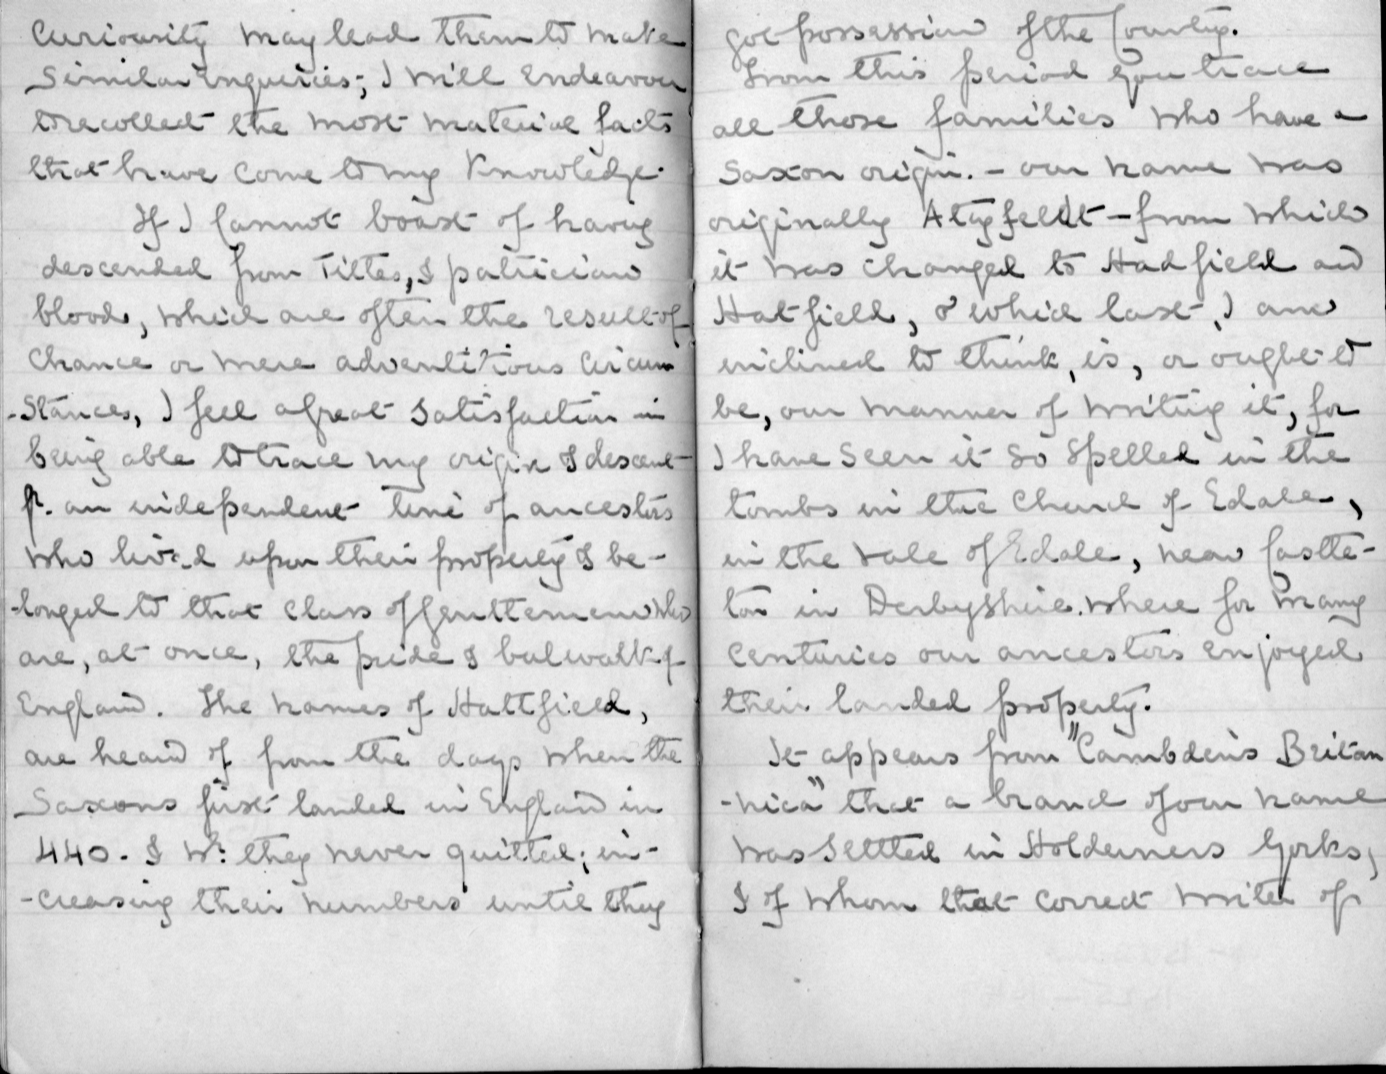 Curiousity may lead them to make
similar enquiries; I will endeavour
to recollect the most material facts
that have come to my Knowledge.
If I cannot boast of having
descended from Titles, & patrician
blood, which are often the result of
chance or mere adventitious circum
-stances, I feel a great satisfaction in
being able to trace my origin & descent
fr. an independent line of ancestors
who lived upon their property & be-
-longed to that class of Gentlemen who
are, at once, the pride & bulwalk of
England. The names of Hattfield,
are heard of from the days when the
Saxons first landed in England in
440. & wh: they never quitted; in-
-creasing their numbers until they
got possession of the County.
From this period you trace
all those families who have a
Saxon origin. - our name was
originally - from which
it was changed to Hadfield and
Hatfield, & which last, I am
inclined to think, is, or ought to
be, our manner of writing it, for
I have seen it so spelled in the
tombs in the Church of Edale,
in the vale of Edale, near Castle-
ton in Derbyshire. where for many
centuries our ancestors enjoyed
their landed property.
It appears from "Cambden's Britan
-nica" that a branch of our name
was settled in Holderness Yorks,
& of whom that correct writer of